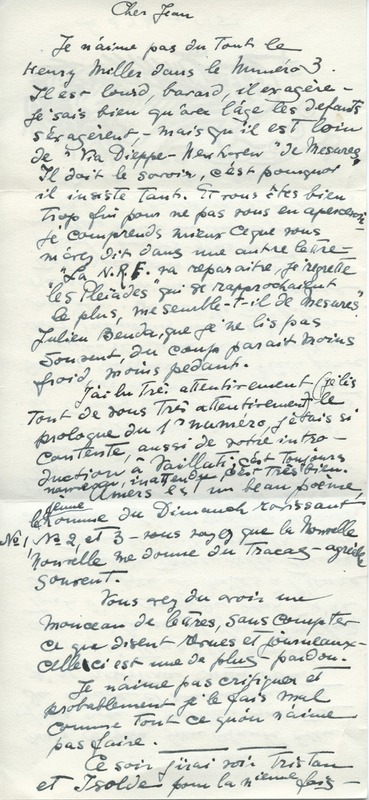 Cher Jean
Je n'aime pas du tout le
Henry Miller dans le Numéro 3.
Il est lourd, bavard, il exagère -
Je sais bien qu'avec l'âge les défauts
s'exagèrent, - mais qu'il est loin
de "Via Dieppe - Newhaven" de Mesures,
Il doit le savoir, c'est pourquoi
il insiste tant. Et vous êtes bien
trop fin pour ne pas vous en apercevoir -
Je comprends mieux ce que vous
m'avez dit dans une autre lettre -
"La N.R.F. va reparaître, je regrette
"les Pléiades" qui se rapprochaient
le plus, me semble-t-il de Mesures"
Julien Benda, que je ne lis pas
souvent, du coup parait moins
froid, moins pédant.
J'ai lu très attentivement (je lis
tout de vous très attentivement) le
prologue du 1er numéro, j'étais si
contente, aussi de votre intro-
duction à Taillati, c'est toujours
nouveau, inattendu, pour très bien.
Amers est un beau poème,
la femme du Dimanche
No 1, No 2, et 3 - vous voyez que la Nouvelle
Nouvelle me donne du tracas - agréable
souvent.
Vous avez dû avoir une
monceau de lettres, sans compter
ce que disent revues et journeaux -
Celle ci est une de plus - pardon.
Je n'aime pas critiquer et
probablement je le fais mal
comme tout ce qu'on n'aime
pas faire.
Ce soir j'irai voir Tristan
et Isolde pour la nieme fois -